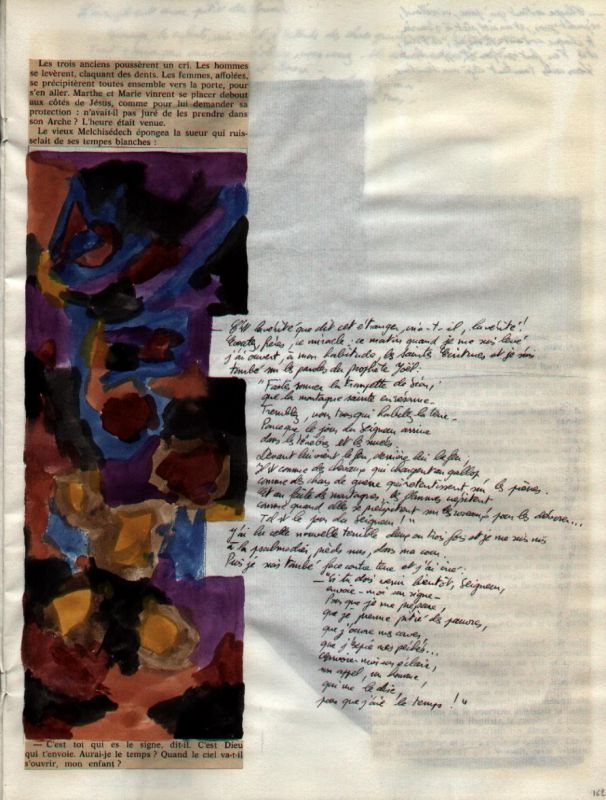 Les trois anciens poussèrent un cri. Les hommes
se levèrent, claquant des dents. Les femmes, affolées,
se précipitèrent toutes ensemble vers la porte, pour
s'en aller. Marthe et Marie vinrent se placer debout
aux côtés de Jésus, comme pour lui demander sa
protection : n'avait-il pas juré de les prendre dans
son Arche ? L'heure était venue.
Le vieux Melchisédech épongea la sueur qui ruis-
selait de ses tempes blanches :
— C'est la vérité que dit cet étranger, cria-t-il, la vérité !
Écoutez, frères, ce miracle : ce matin quand je me suis levé
j'ai ouvert, à mon habitude, les saintes Écritures et je suis
tombé sur les paroles du prophète Joël :
"Faites sonner la trompette de Sion,
que la montagne sainte en
Tremblez, vous tous qui habitez la terre
Parce que le jour du Seigneur arrive
dans les ténèbres et les nuées
devant lui vient le feu, derrière lui le feu,
Il est comme des chevaux qui chargent au gallop
comme des chars de guerre qui retentissent sur les pierres.
Et au faîte des montagnes, les flammes crépitent
comme quand elles se précipitent sur les roseaux pour les dévorer...
Tel est le jour du Seigneur ! "
J'ai lu cette nouvelle terrible deux ou trois fois et je me suis mis
à la psalmodier, pieds nus, dans ma cour.
Puis je suis tombé face contre terre et j'ai crié :
— "Si tu dois venir bientôt, Seigneur,
envoie-moi un signe
Pour que je me prépare,
que je prenne pitié des pauvres,
que j'ouvre mes caves,
que j'expie mes péchés...
envoie-moi un éclair,
un appel, un homme
qui me le dise,
pour que j'aie le temps ! "
— C'est toi qui es le signe, dit-il. C'est Dieu
qui t'envoie. Aurai-je le temps ? Quand le ciel va-t-il
s'ouvrir, mon enfant ?
162